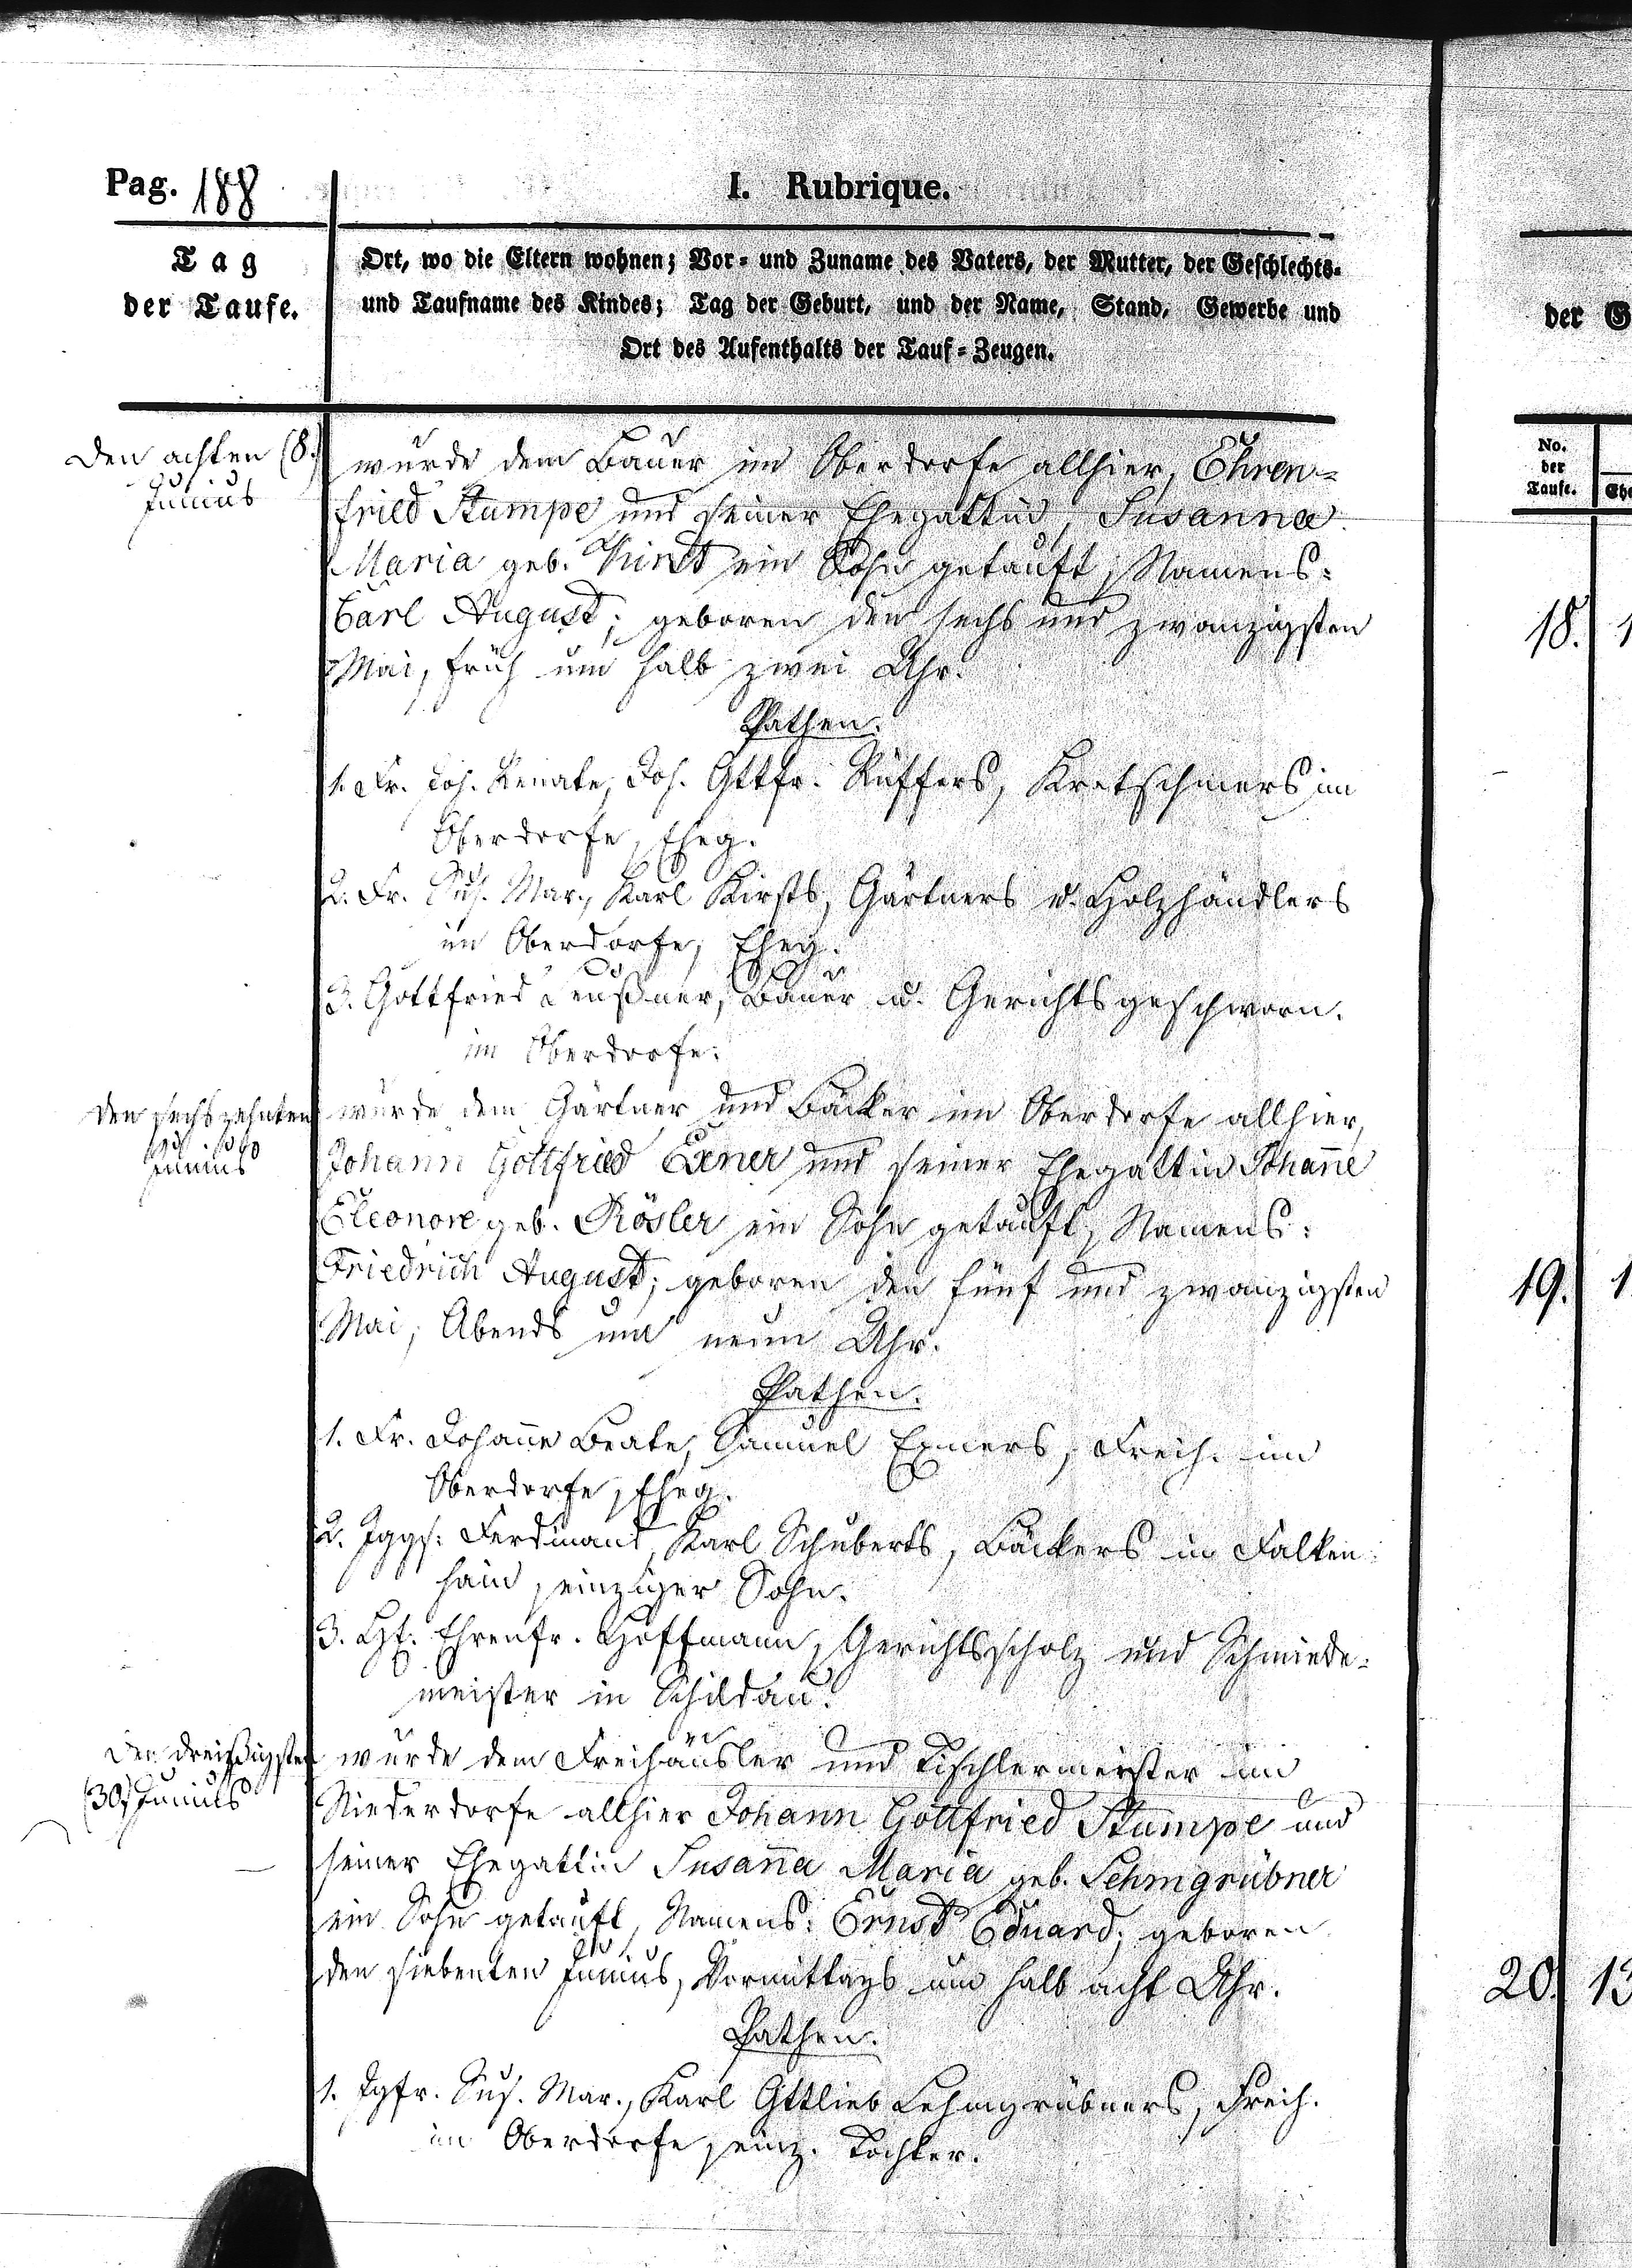 Pag. 188
I. Rubrique.
Tag
der Taufe.
Ort, wo die Eltern wohnen; Vor- und Zuname des Vaters, der Mutter, der Geschlechts-
und Taufname des Kindes; Tag der Geburt, und der Name, Stand, Gewerbe und
Ort des Aufenthalts der Tauf-Zeugen.
der
No.
der
Taufe.
Den achten (8.)
Junius
wurde dem Bauer im Oberdorfe allhier, Ehren-
fried Stumpe und seiner Ehegattin, Susanna
Maria geb. ein Sohn getauft, Namens:
Carl August; geboren den sechs und zwanzigsten
Mai, früh um halb zwei Uhr.
18.
Pathen.
1. Fr. Joh. Renate, Joh. Gttfr. Rüffers, Kretschmers im
Oberdorfe, Eheg.
2. Fr. Sus. Mar., Karl Kirsts, Gärtners u. Holzhändlers
im Oberdorfe, Eheg.
3. Gottfried Leußner, Bauer u. Gerichtsgeschworn.
im Oberdorfe.
Den sechszehnten
Junius
wurde dem Gärtner und Bäcker im Oberdorfe allhier,
Johann Gottfried Exner und seiner Ehegattin Johan̄e
Eleonore geb. Rösler ein Sohn getauft, Namens:
Friedrich August; geboren den fünf und zwanzigsten
Mai, Abends um neun Uhr.
19.
Pathen.
1. Fr. Johan̄e Beate, Samuel Exners, Freih. im
Oberdorfe, Eheg.
2. Jggs. Ferdinand, Karl Schuberts, Bäckers in Falken-
hain, einziger Sohn.
3. Ehrenfr. Hoffmann, Gerichtsscholz und Schmiede-
meister in Schildau.
Den dreißigsten
(30) Junius
wurde dem Freihäusler und Tischlermeister im
Niederdorfe allhier Johann Gottfried Stumpe und
seiner Ehegattin Susan̄a Maria geb. Lehmgrübner
ein Sohn getauft, Namens: Ernst Eduard; geboren
den siebenten Junius, Vormittags um halb acht Uhr.
20. 13
Pathen.
1. Jgfr. Sus. Mar., Karl Gttlieb Lehmgrübners, Freih.
im Oberdorfe, einz. Tochter.